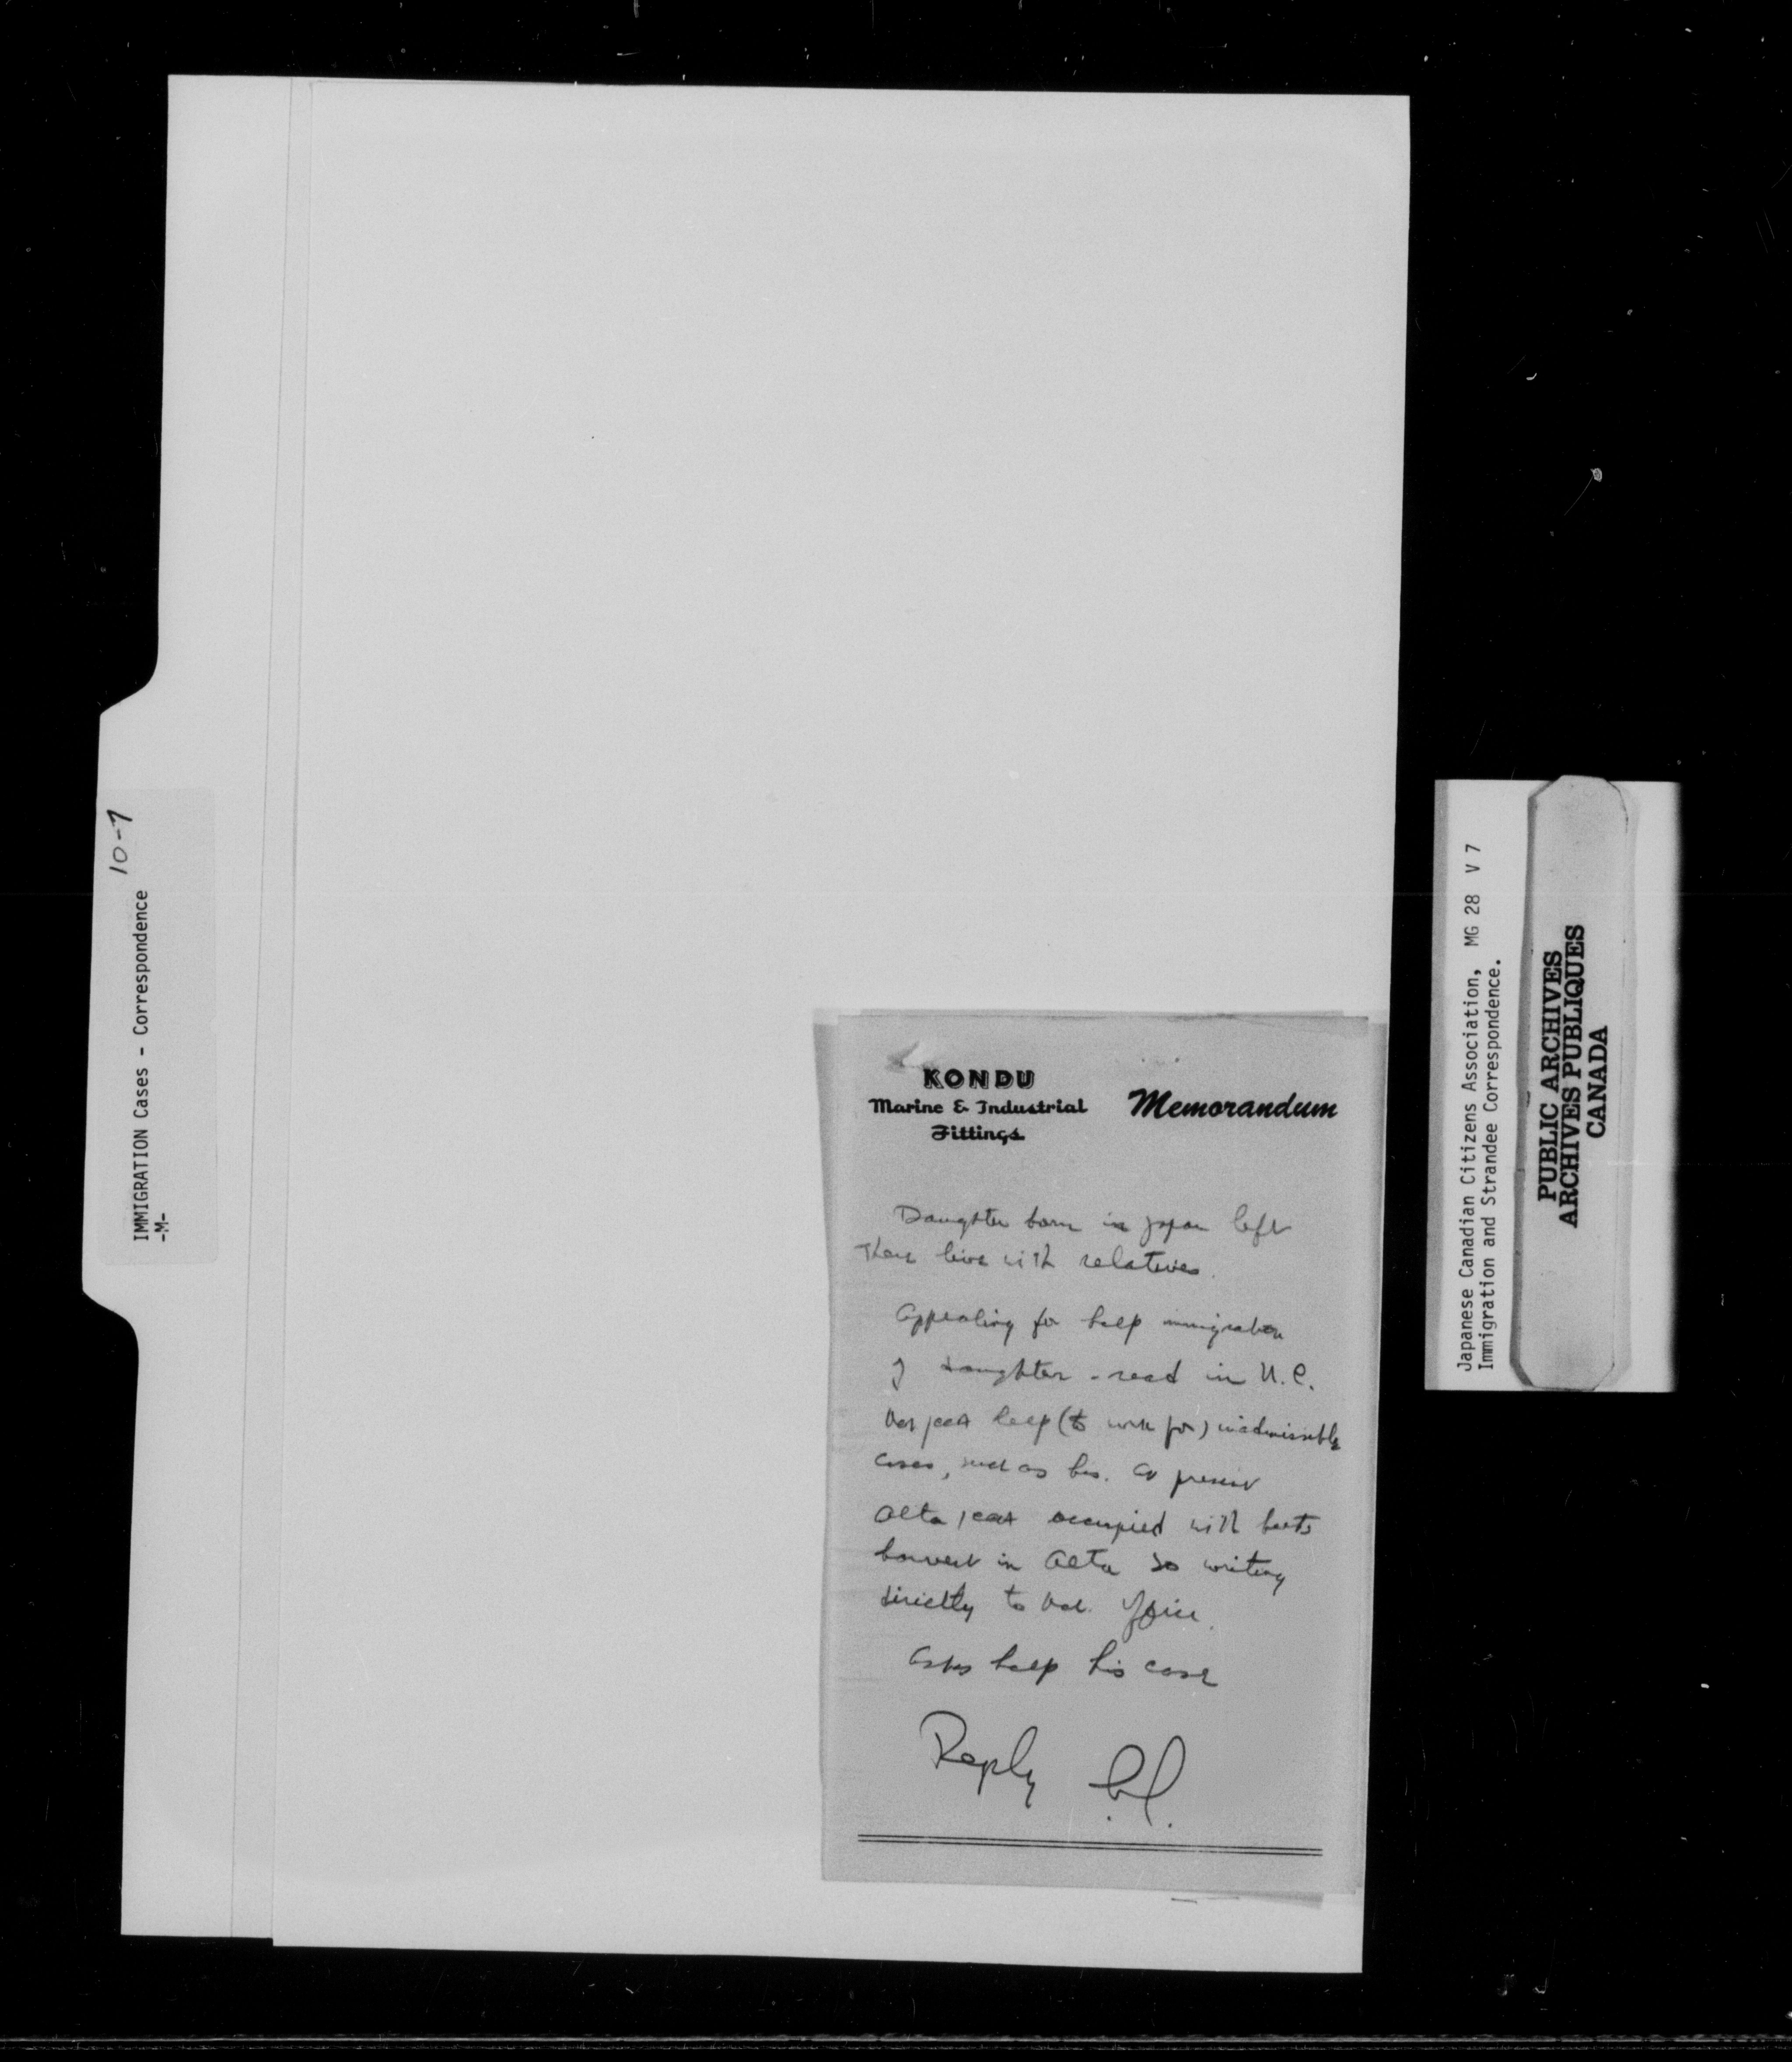 IMMIGRATION Cases - Correspondence 10-7
-M-
KONDU
Marine & Industrial
Fittings
Memorandum
Daughter born in Japan left
there live with relatives.
Appealing for help immigration
of daughter - read in N.C.
Nat JCCA help (to work for) inadmissible
cases, such as his. At present
Alta JCCA occupied with beets
harvest in Alta so writing
directly to Nat. Office.
Asks help his case
Reply
Japanese Canadian Citizens Association, MG 28 V 7
Immigration and Strandee Correspondence.
PUBLIC ARCHIVES
ARCHIVES PUBLIQUES
CANADA